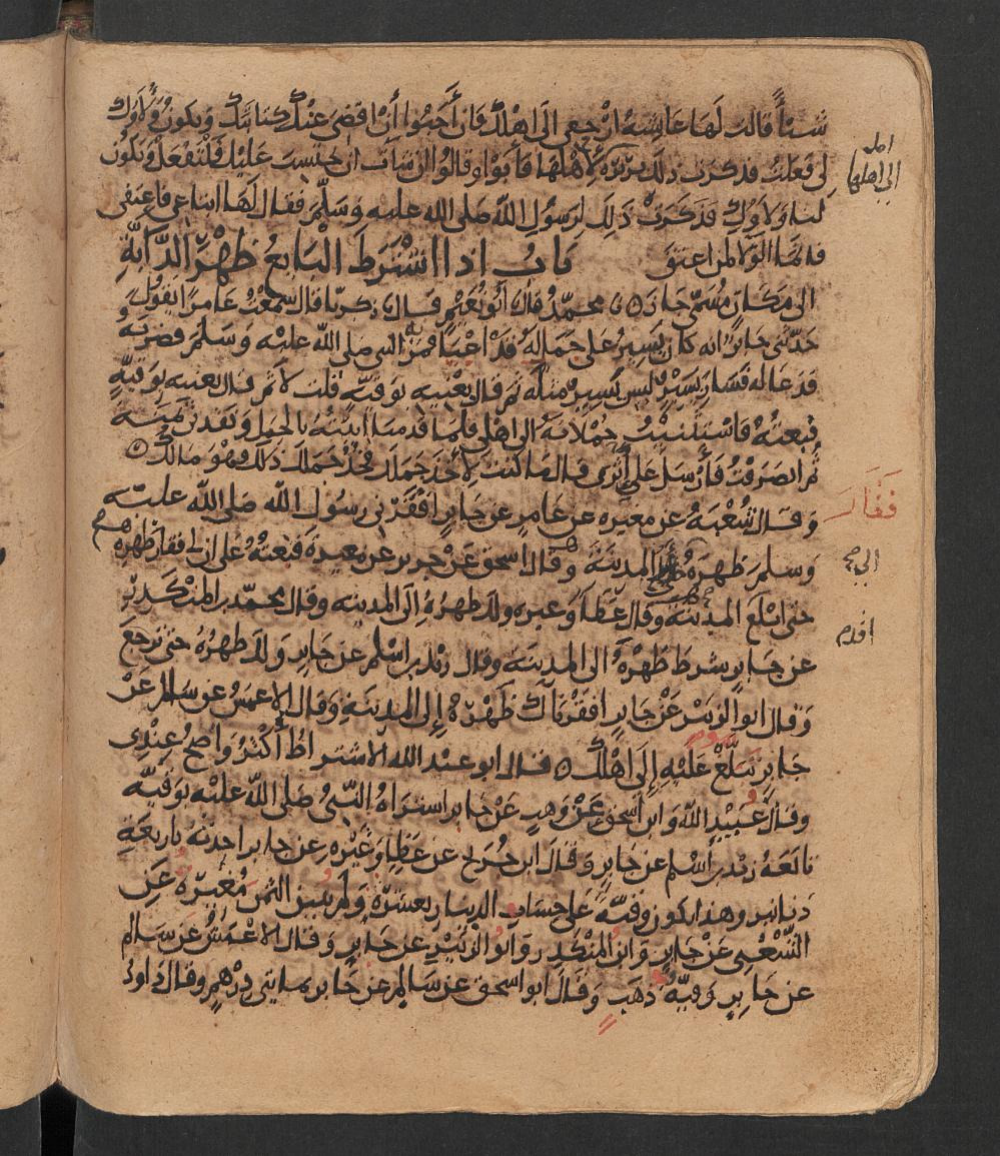 شيئاً قالت لها عايشة ارْجعي الى اهلك فان أحبّوا أنْ اقضىَ عنْك كتابتك ويكونُ ولاؤك
لى فعلتُ فذكرت ذلك بريرة لأهلها فأبوا وقالوا ان شاَت ان تحتسب عليك فلْتفعلْ ويكون
لنا ولاؤك فذكرَتْ ذلِكَ لرسوُلِ الله صَلى الله عليه وسلّمَ فقال لهَا ابتاعى فاعتقى
فانما الولا لمن اعتق باب اذا اشترط البايعُ ظهْرَ الدَّابّةِ
الى مكانٍ مسَمّى جاز محمّدٌ قال أبو نُعَيْمٍ قال زكريّا قال سمعْتُ عَامرًا يقول
حدّثنى جابرٌ انه كان يَسيرُ على جمَلٍ لهُ قد اعْيَا فمرّ النبى صلى الله عليه وَسَلمَ فضربه
فدعا له فسَار بسَيْرٍ ليس يَسيرُ مثله ثم قال بعْنيهِ بوقيّه قلت لا ثم قال بعنيه بوقيّه
فبعتهُ فاسْتثنيْتُ حِمْلانهُ الى اهْلى فلما قدمنا اتيْتُه بالجمل ونقدنى ثمنه
ثم انصرفْتُ فأرْسل على أثرى قال ما كنت لآخذ جمَلك فخذْ جملك ذلك فهْوَ مالك
وَقال شعْبَةُ عن مغيره عن عَامرٍ عن جابرٍ افْقرَنى رسوُل الله صَلى الله عليه
وَسلمَ ظهرَهُ الى المدينة وقال اسحق عَنْ جرير عن مغيرة فبعتهُ على ان لى فقار ظهْرِه
حتى ابْلغ المدينة وقال عَطَا وَغيره ولك ظهرُهُ إلى المدينه وقال محمّد بن المنْكدر
عن جَابرٍ شرط ظهْرهُ الى المدينة وقال زيْد بن اسْلم عن جَابرٍ وَلكَ ظهرُهُ حتى ترجعَ
وَقال ابو الزبَيْر عَنْ جَابرٍ افقرْناك ظهْرهُ إلى المدينَةِ وقال الاعمَشُ عن سَالم عَنْ
جابرٍ تبَلّغْ عليْهِ إلى اهْلك قال ابو عبْد الله الاشتراطُ أكْثرُ وَاصحُّ عِنْدى
وقالَ عُبَيْد الله وَابن اسْحق عَنْ وَهبٍ عَنْ جَابر اشتراهُ النّبىُّ صَلى الله عليْه بوَقيّه
تابَعهُ زيْد بن أسْلم عن جَابرٍ وَقالَ ابن جُريْجٍ عن عَطا وَغيْره عن جابر اخذتهُ باربَعَةِ
دنانير وهذا يكون وَقيّةً على حسَابِ الدينار بعشرَة وَلم يبيّن الثمنَ مُغيرَهُ عَنِ
الشّعْبى عَنْ جَابرٍ وَابنُ المنْكَدر وَابوُ الزبَيْرِ عن جَابرٍ وَقال الاعْمَشُ عن سَالم
عن جَابِرٍ وَقيّةُ ذهَبٍ وَقالَ ابو اسحق عن سَالمٍ عن جَابر بمايتى دِرْهمٍ وقال دَاودُ
الى اهلها
فقار
الى